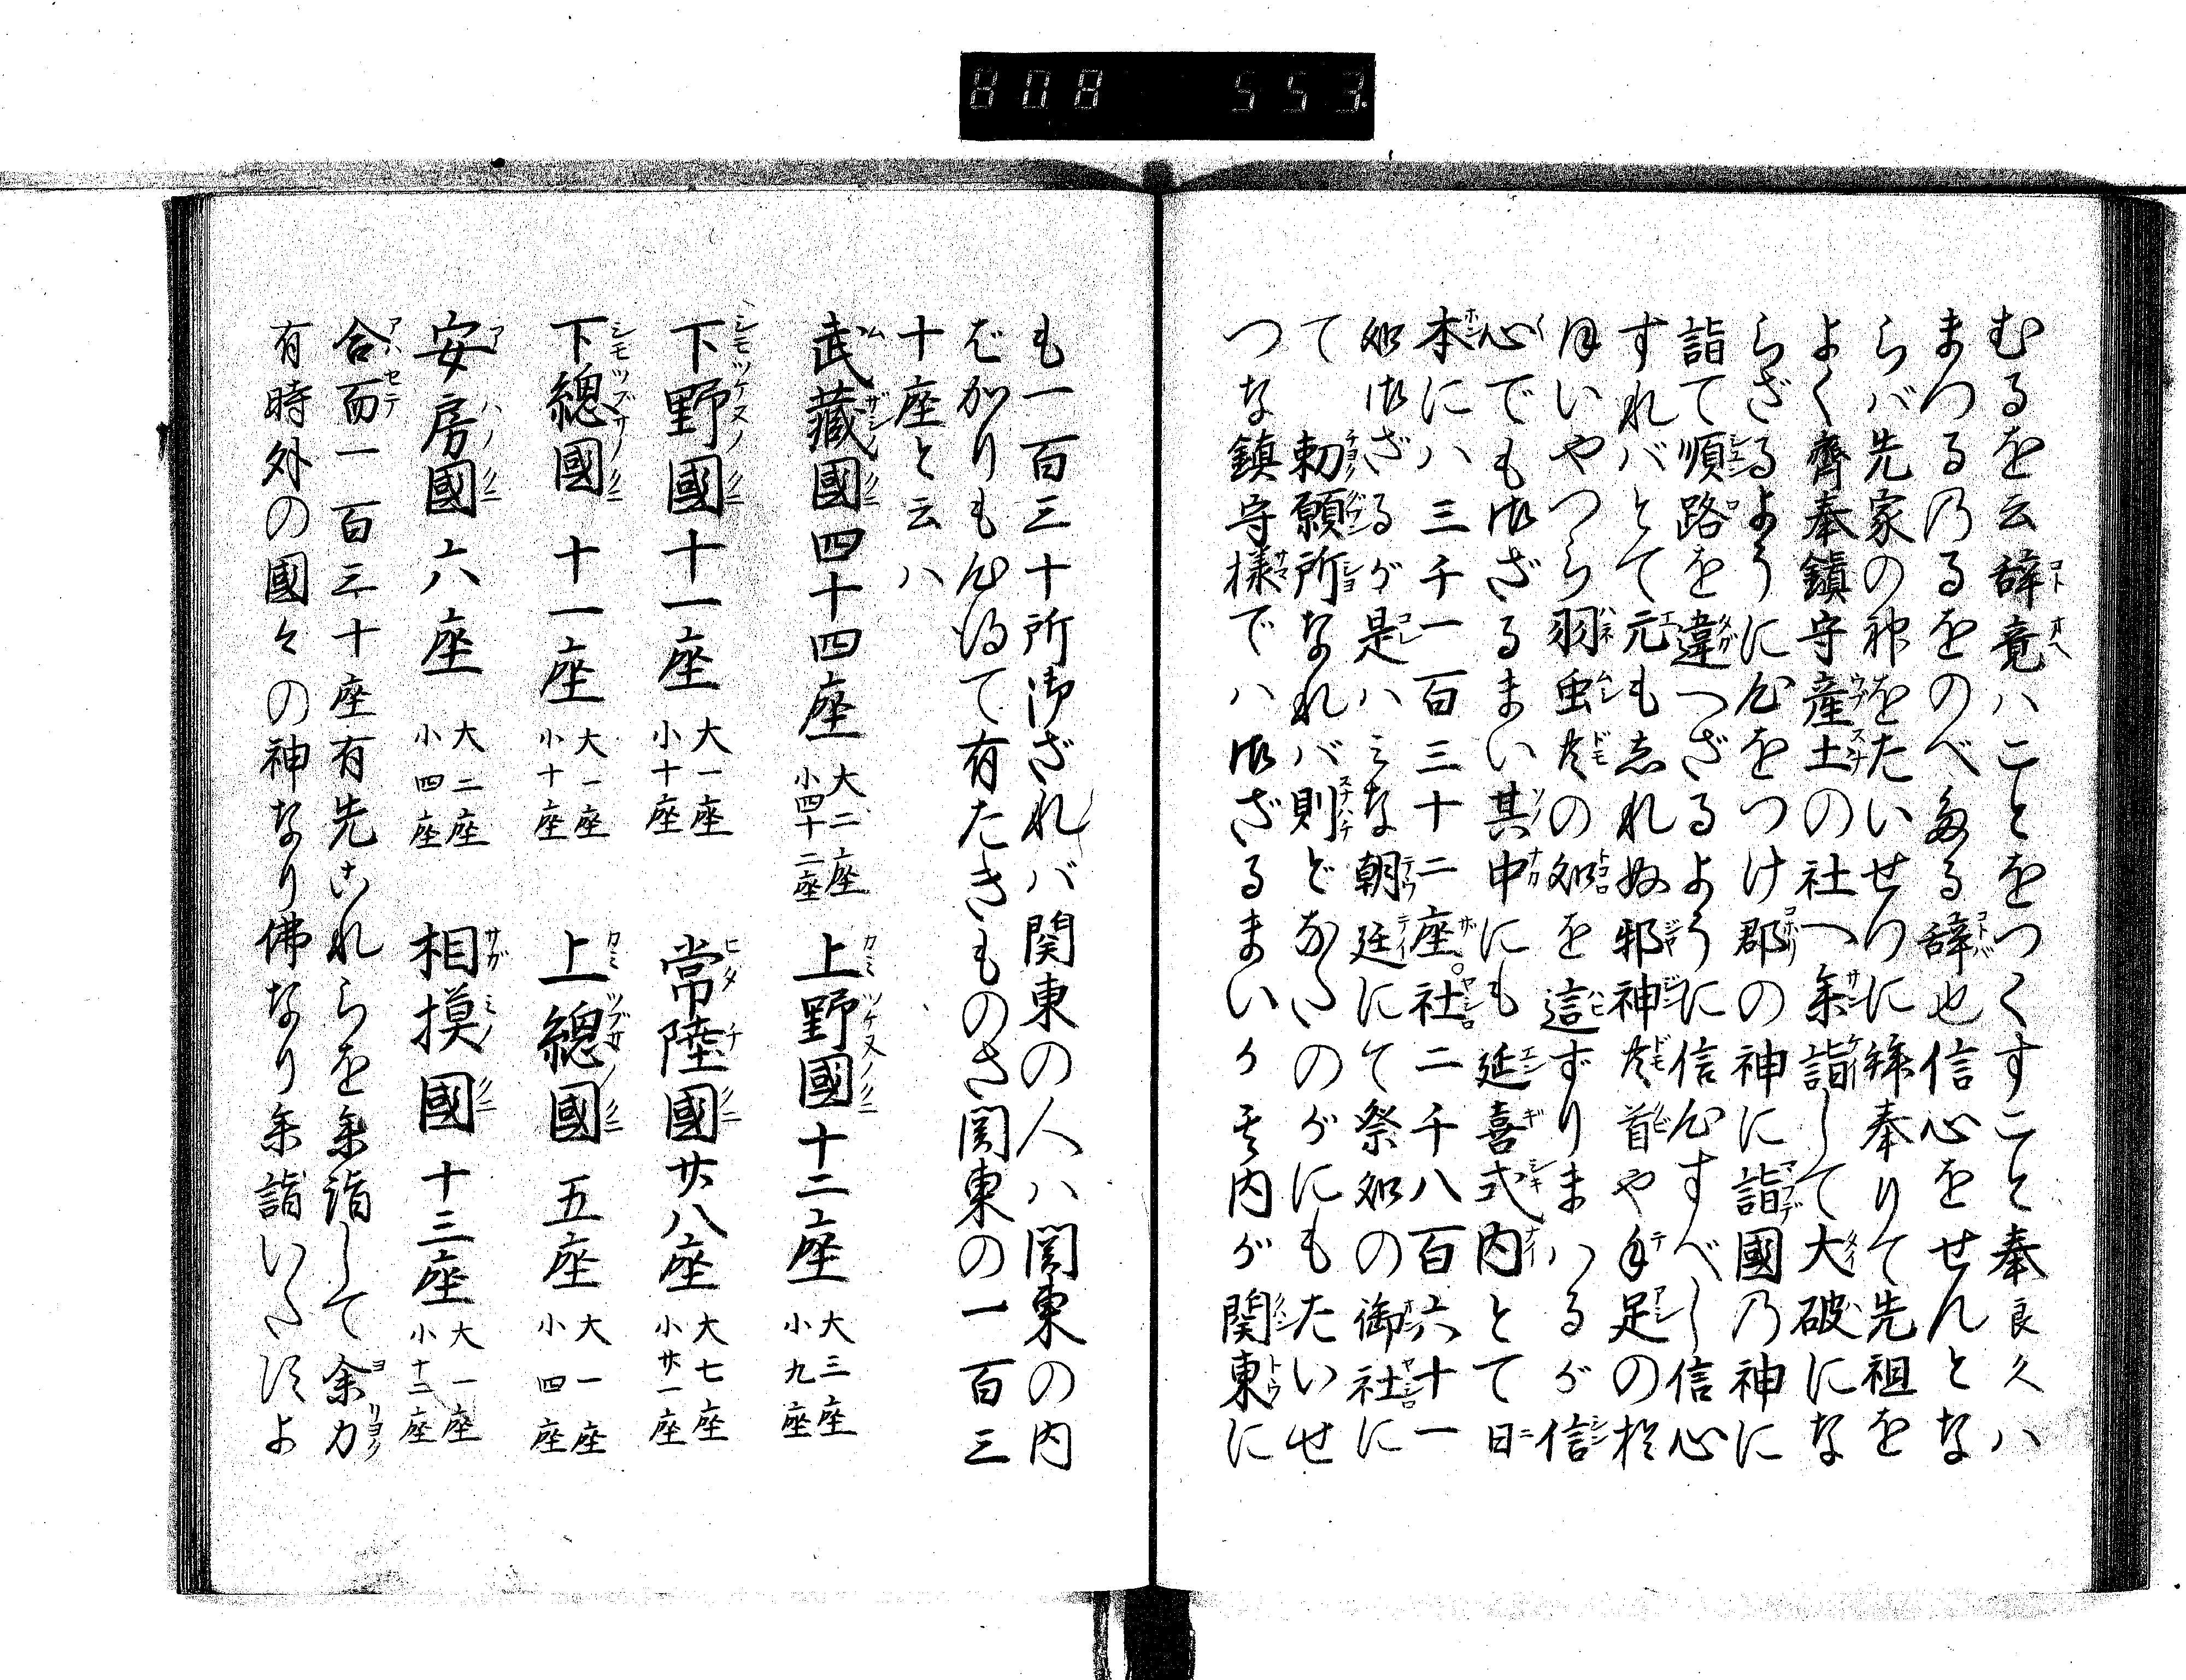 808 553.
むるを云辞竟ハことをつくすこと奉良久ハ
まつる乃るをのべ多る辞也信心をせんとな
らバ先家の神をたいせつに拜奉りて先祖を
よく齊奉鎮守産土の社へ参詣して大破にな
らざるように心をつけ郡の神に詣國乃神に
詣て順路を違つざるように信心すべし信心
すれバとて元もゑれぬ邪神共首や手足の於
ほいやつら羽虫共の処を這ずりまハるが信
心でも御ざるまい其中にも延喜式内とて日
本にハ三千一百三十二座社二千八百六十一
処御ざるが是ハミな朝廷にて祭処の御社に
て 勅願所なれバ則どなたのがにもたいせ
つな鎮守様でハ御ざるまいか其内が関東に
も一百三十所御ざれバ関東の人ハ関東の内
ばかりも心得て有たきものさ関東の一百三
十座と云ハ
武藏國四十四座 大二座 小四十二座 上野國十二座 大三座 小九座
下野國十一座 大一座 小十座 常陸國廿八座 大七座 小廿一座
下總國 十一座 大一座 小十座 上總國 五座 大一座 小四座
安房國 六座 大二座 小四座 相摸國 十三座 大一座 小十二座
合而一百三十座有先これらを参詣して余力
有時外の國々の神なり佛なり参詣いたすよ